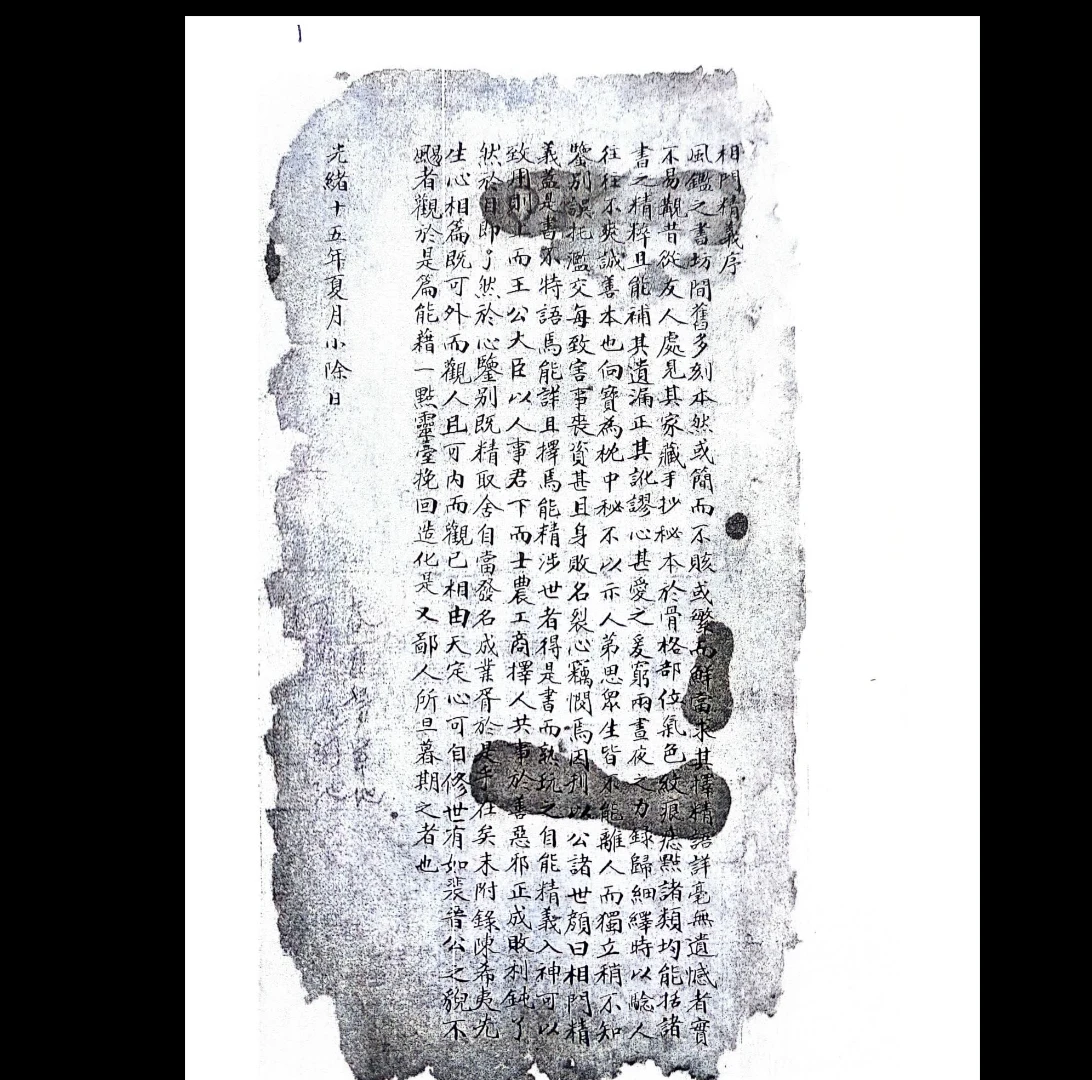 相門精義序
風鑑之書坊間舊多刻本然或簡而不賅或繁而鮮當求其擇精語詳毫無遺憾者實
不易覯昔從友人處見其家藏手抄秘本於骨格部位氣色紋痕痣點諸類均能括諸
書之精粹且能補其遺漏正其訛謬心甚愛之爰窮兩晝夜之力錄歸細繹時以驗人
往往不爽誠善本也向寶為枕中秘不以示人第思眾生皆不能離人而獨立稍不知
鑒別誤托濫交每致害事喪資甚且身敗名裂心竊憫焉因刊以公諸世顏曰相門精
義蓋是書不特語焉能詳且擇焉能精涉世者得是書而熟玩之自能精義入神可以
致用則上而王公大臣以人事君下而士農工商擇人共事於善惡邪正成敗利鈍了
然於目即了然於心鑒別既精取舍自當發名成業胥於是乎在矣末附錄陳希夷先
生心相篇既可外而觀人且可內而觀己相由天定心可自修世有如裴晉公之貌不
颺者觀於是篇能藉一點靈臺挽回造化是又鄙人所旦暮期之者也
光緒十五年夏月小除日